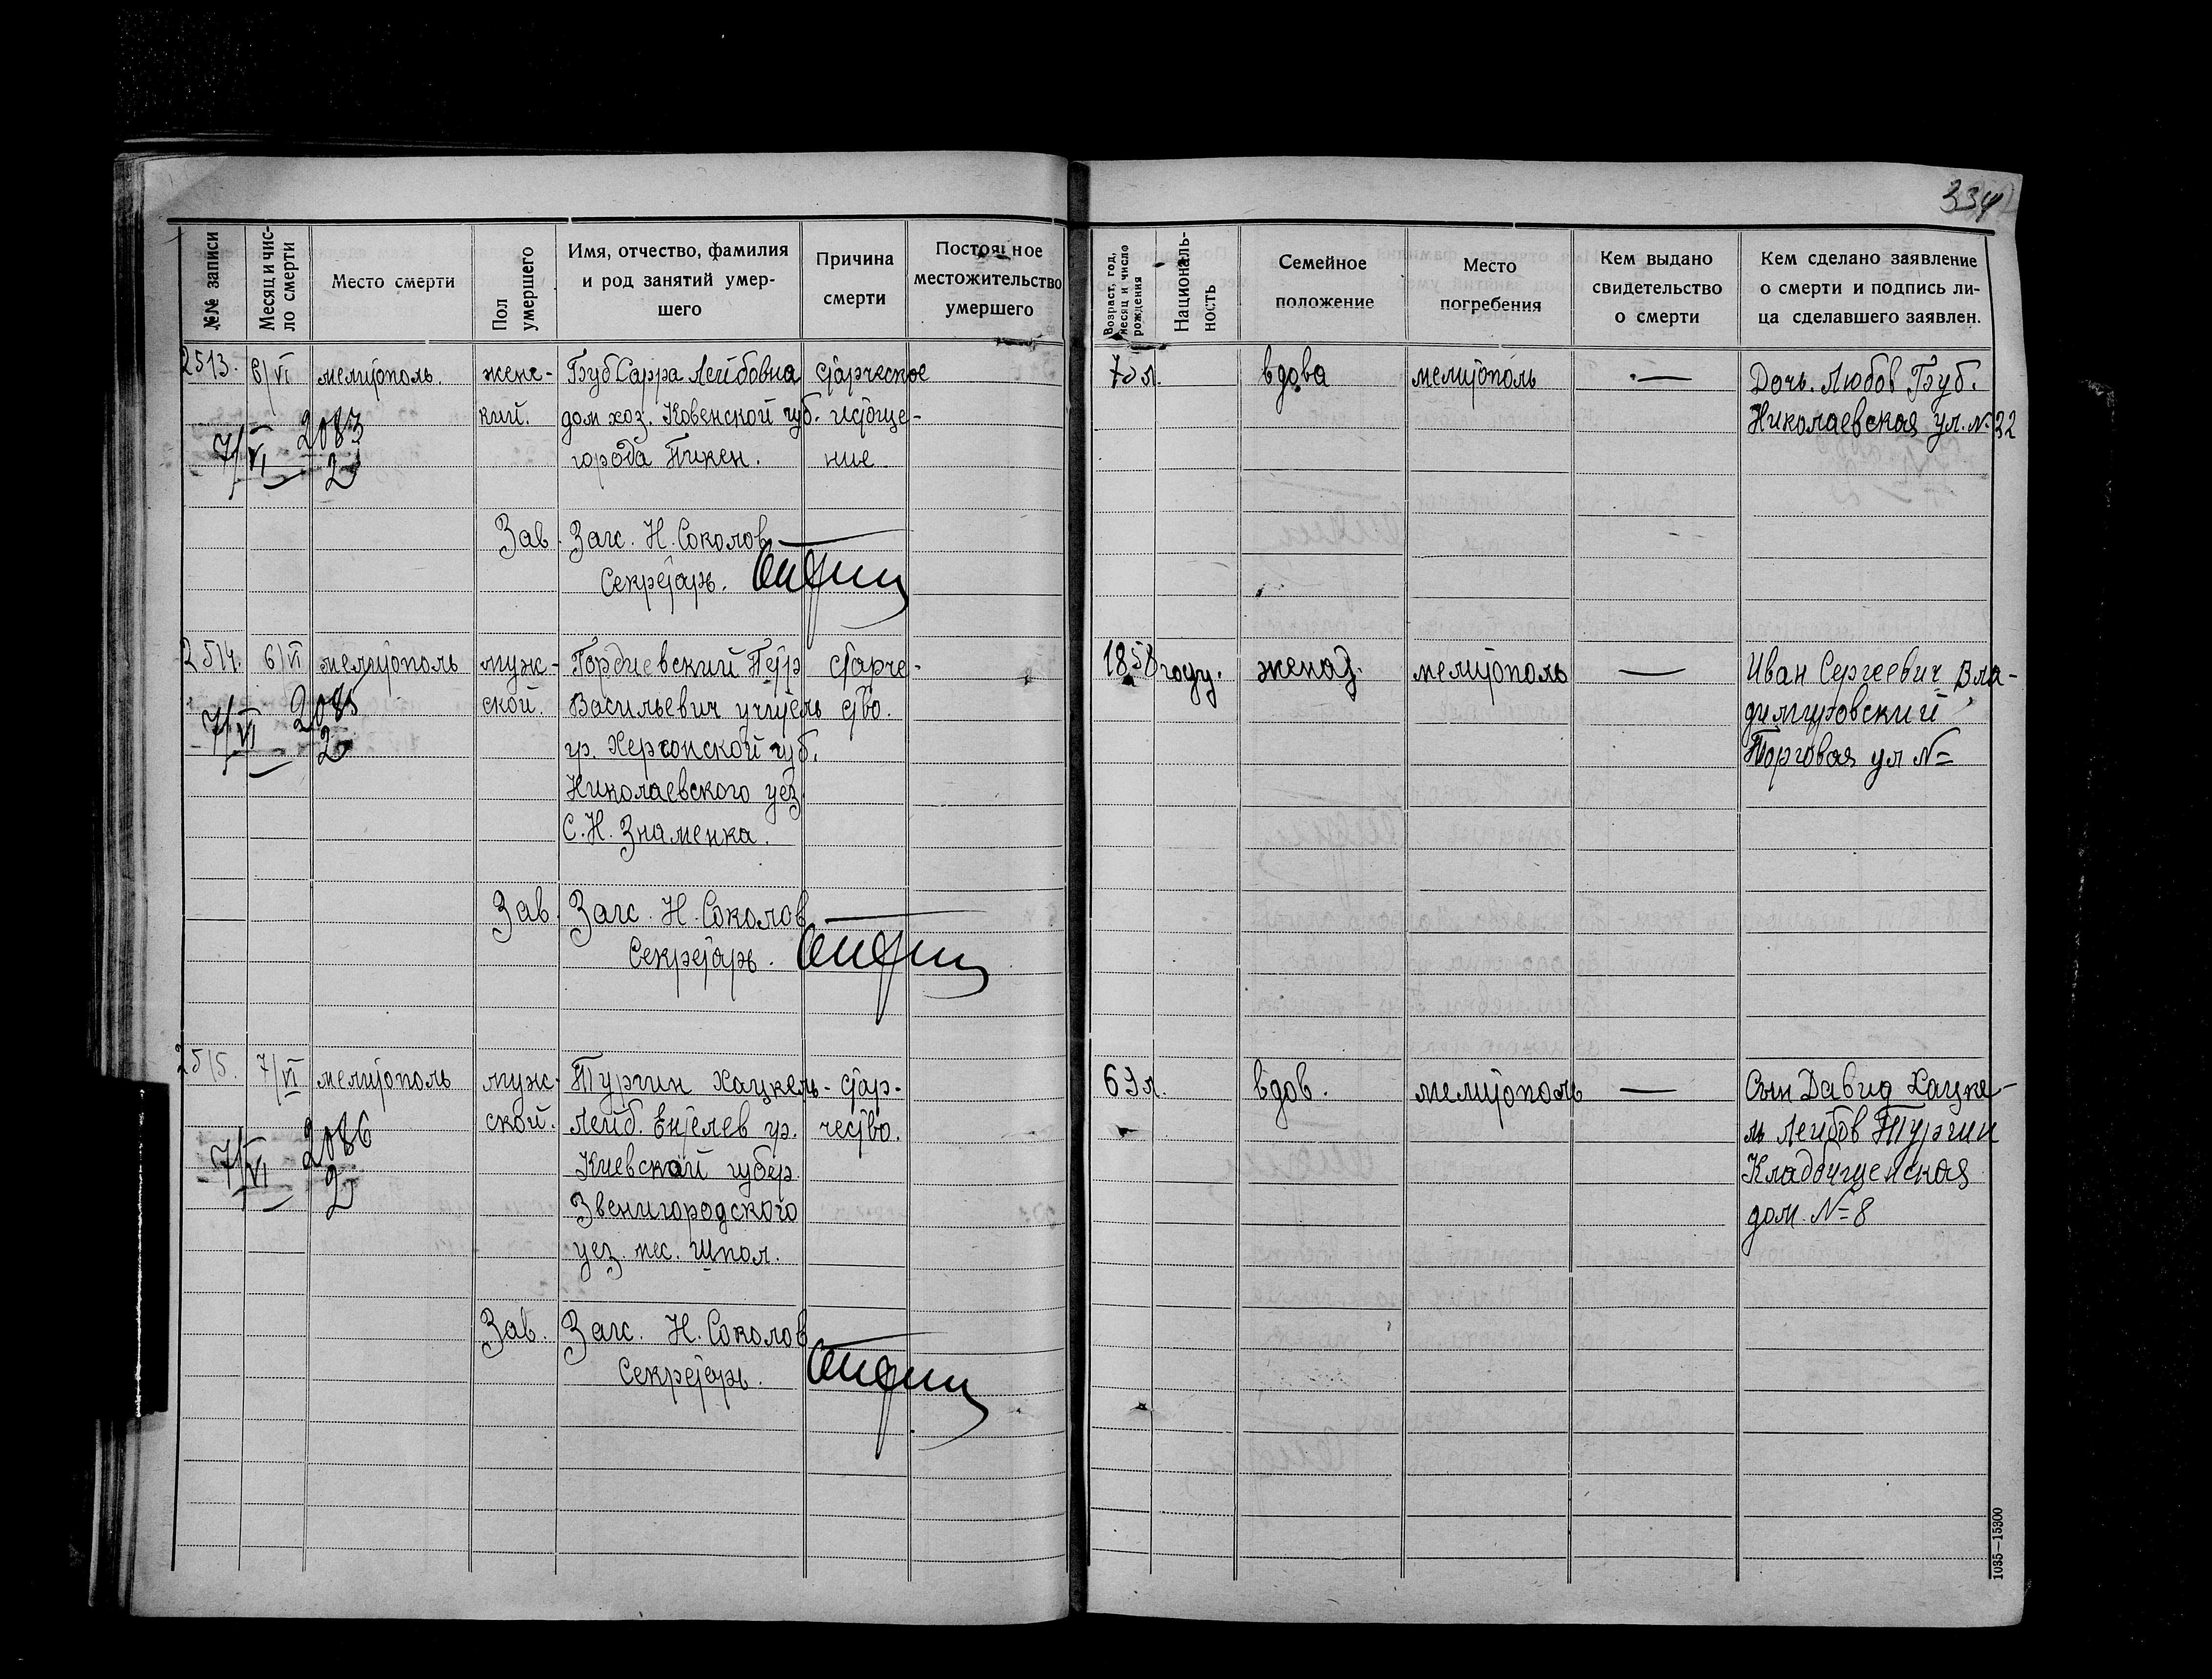 334
№№ записи
Месяц и чис-
ло смерти
Место смерти
Пол
умершего
Имя, отчество, фамилия
и род занятий умер-
шего
Причина
смерти
Постоянное
местожительство
умершего
Возраст, год,
месяц и число
рождения
Националь-
ность
Семейное
положение
Место
погребения
Кем выдано
свидетельство
о смерти
Кем сделано заявление
о смерти и подпись ли-
ца сделавшего заявлен.
2513. 6/VI мелитополь. женс- Губ Сарра Лейбовна старческое 70 л. вдова мелитополь — Дочь. Любов Губ.
кий. дом хоз. Ковенской губ. истоще- Николаевская ул. № 32
7/VI 2083 города Пикен. ние
2
Зав. Загс. Н. Соколов
Секретарь.
2514. 6/VI мелитополь муж- Гордиевский Петр старче- 1858 году. женат. мелитополь — Иван Сергеевич Вла-
ской. Васильевич учитель ство. димировский
7/VI 2085 гр. Херсонской губ. Торговая ул №
2
Николаевского уез.
С. Н. Знаменка.
Зав. Загс. Н. Соколов
Секретарь.
2515. 7/VI мелитополь муж- Тургин Хацкель- стар- 69 л. вдов. мелитополь — Сын Давид Хацке-
ской. Лейб. Ентелев гр. чество. ль Лейбов Тургин
7/VI 2086 Киевской губер. Кладбищенская
2 Звенигородского дом. № 8
уез. мес. Шпол.
Зав. Загс. Н. Соколов
Секретарь.
1035—15300